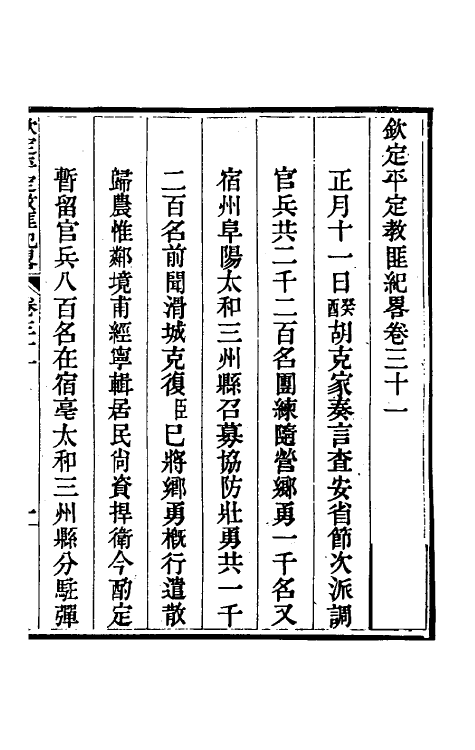 欽定平定教匪紀畧卷三十一
正月十一日癸酉胡克家奏言查安省節次派調
官兵共二千二百名團練隨營鄉勇一千名又
宿州阜陽太和三州縣召募協防壯勇共一千
二百名前聞滑城克復臣已將鄉勇槪行遣散
歸農惟鄰境甫經寧輯居民尙資捍衛今酌定
暫留官兵八百名在宿亳太和三州縣分駐彈
欽定平定教匪紀畧 卷三十一 一